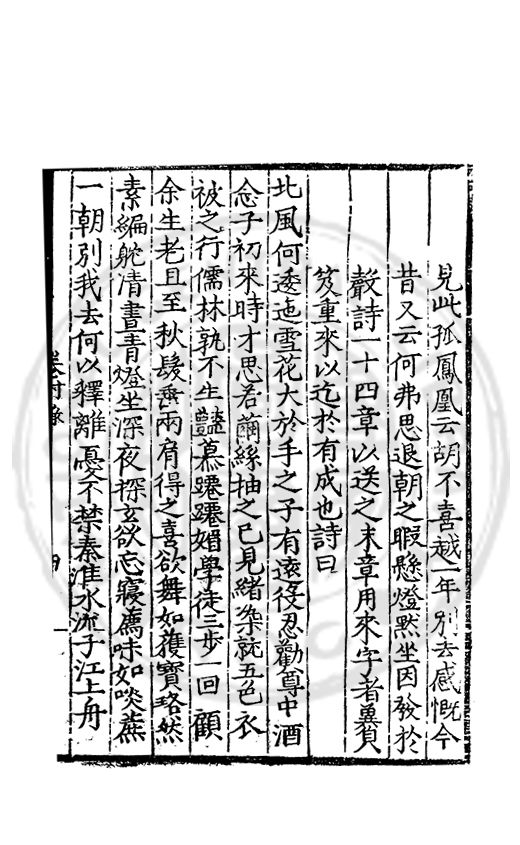 見此孤鳳凰云胡不喜越一年別去感慨今
昔又云何弗思退朝之暇懸燈默坐因發於
聲詩一十四章以送之末章用來字者冀負
笈重來以迄於有成也詩曰
北風何逶迤雪花大於手之子有遠役忍勸尊中酒
念子初來時才思若繭絲抽之已見緒染就五色衣
被之行儒林孰不生豔慕躚躚媚學徒三步一回顧
余生老且至秋髮垂兩肩得之喜欲舞如獲寶璐然
素編躭清晝青燈坐深夜探玄欲忘寢薦味如啖蔗
一朝別我去何以釋離憂不禁秦淮水流子江上舟
附錄